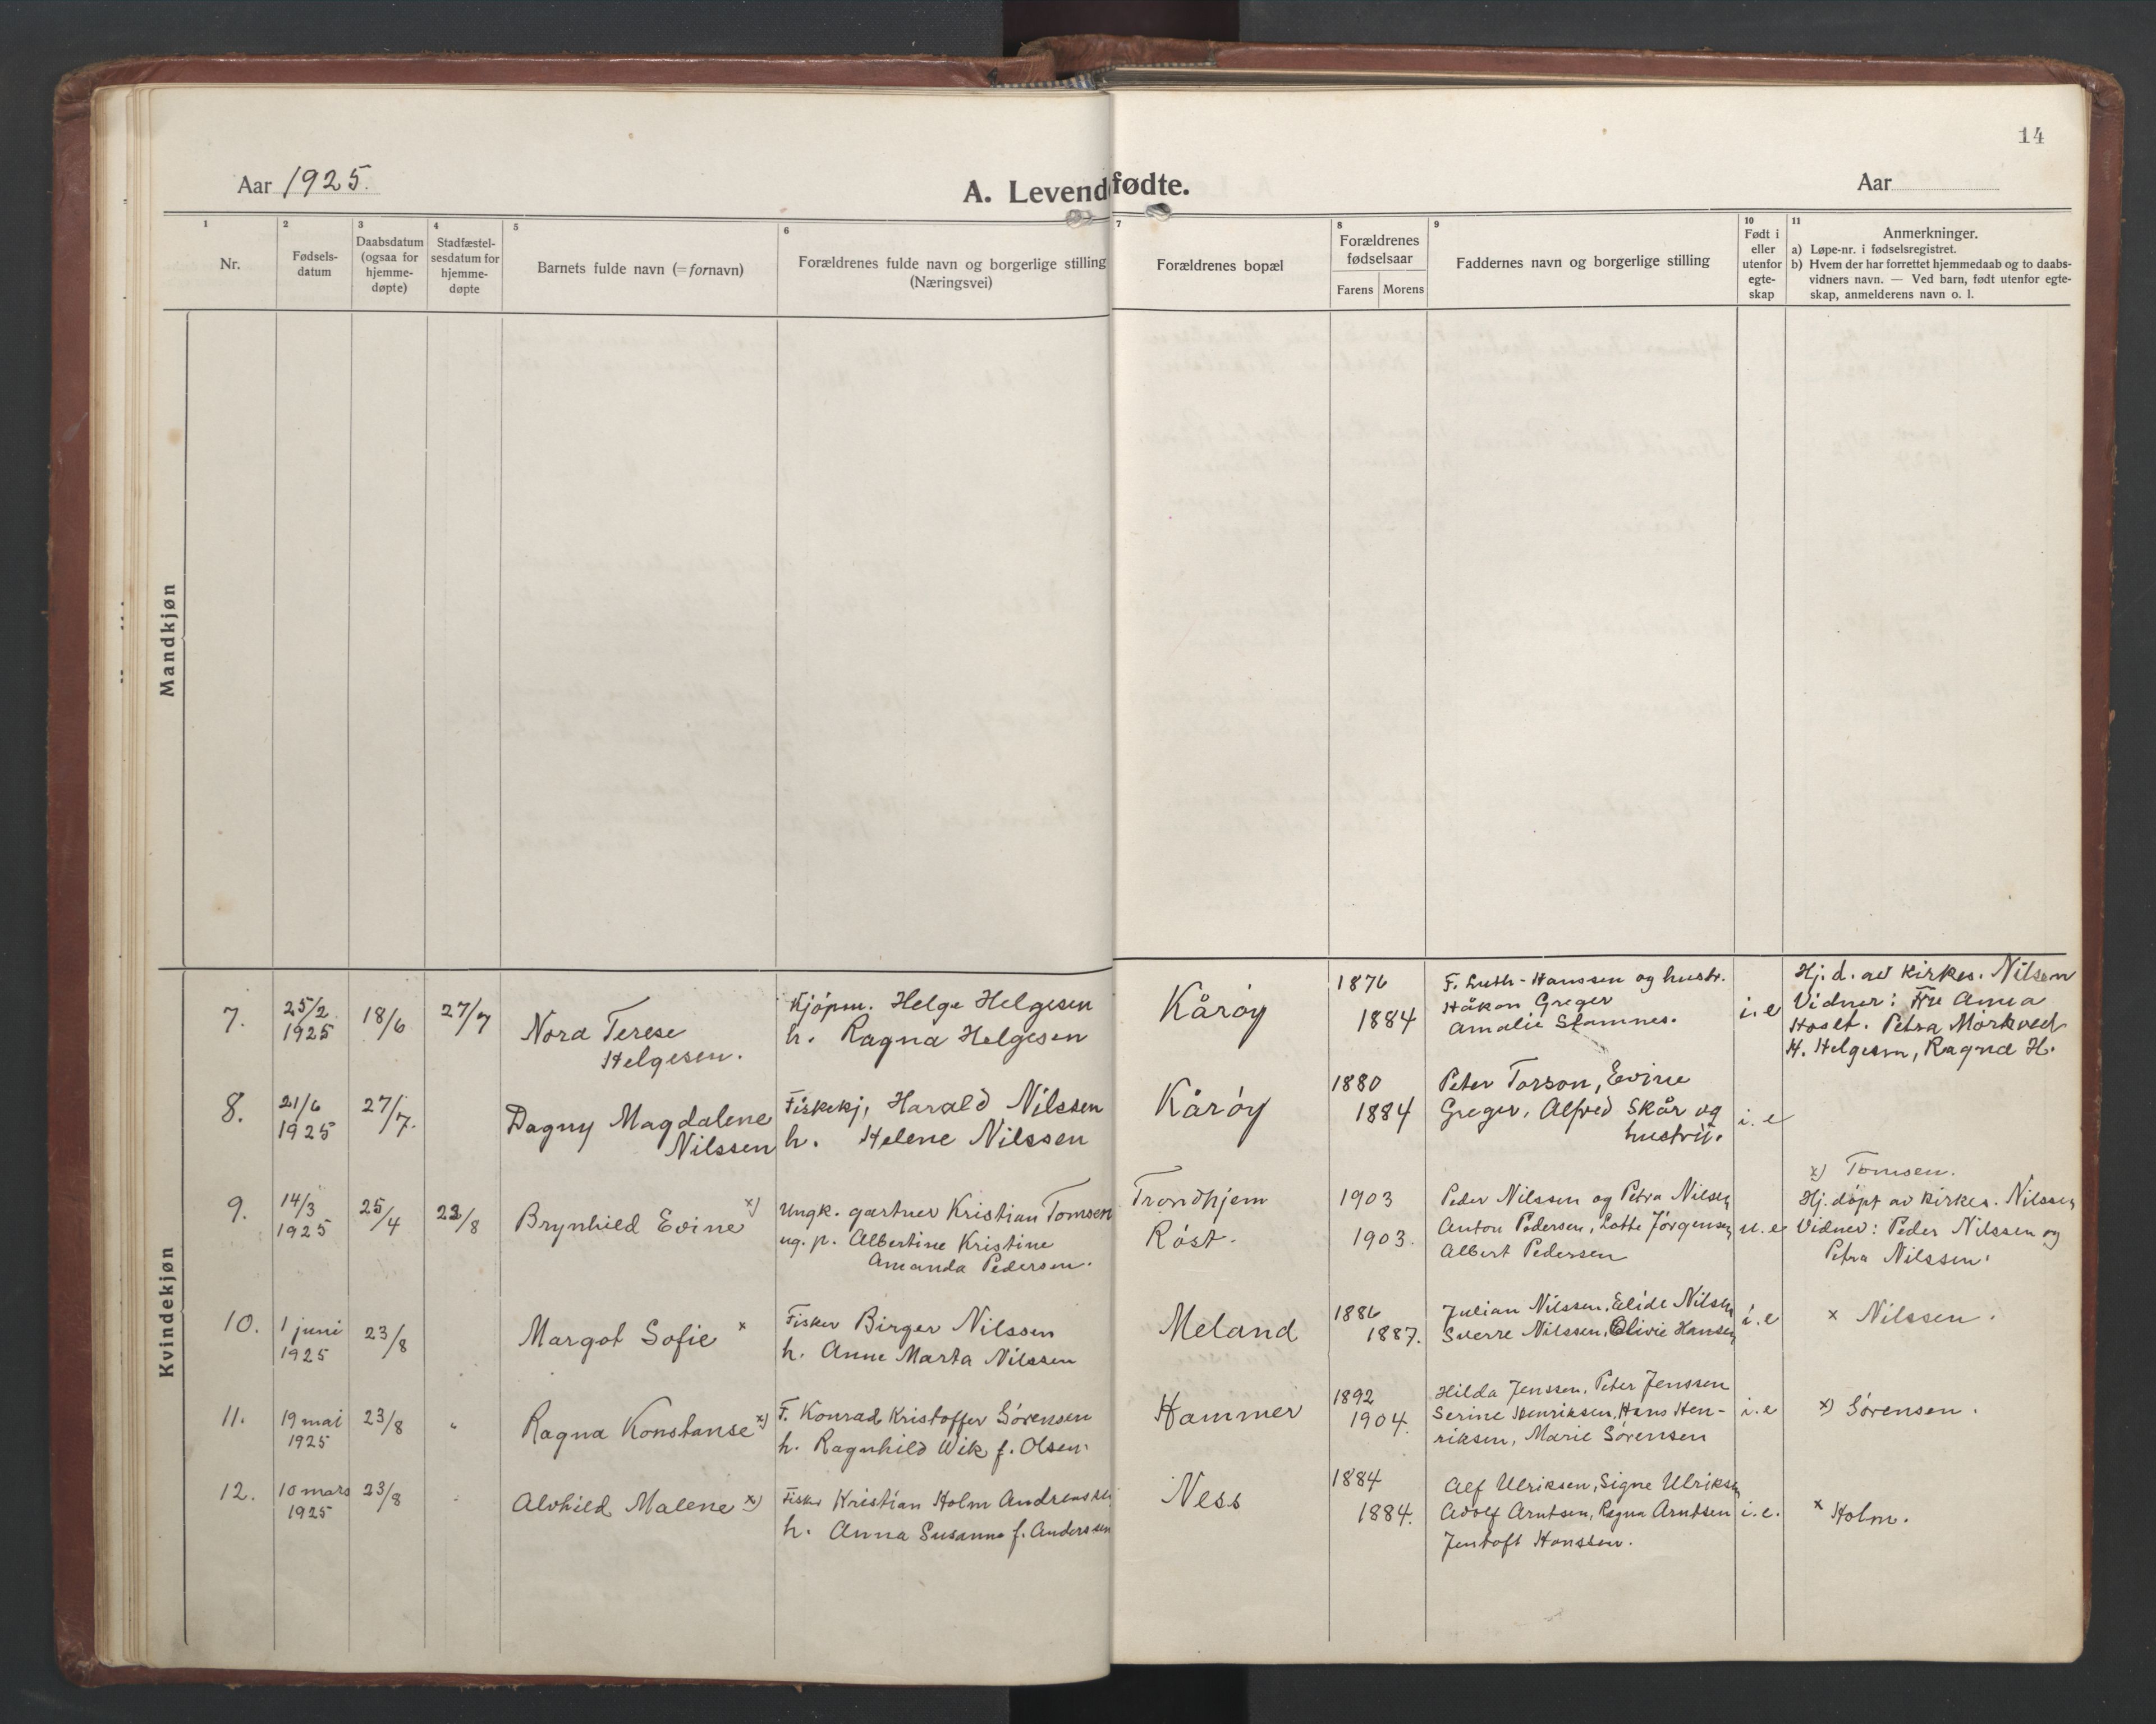 14
Aar 1925.
A. Levendefødte.
Aar
1
2
3
4
5
6
7
8
9
10
11
Nr.
Fødsels-
datum
Daabsdatum
(ogsaa for
hjemme-
døpte)
Stadfæstel-
sesdatum for
hjemme-
døpte
Barnets fulde navn (= fornavn)
Forældrenes fulde navn og borgerlige stilling
(Næringsvei)
Forældrenes bopæl
Forældrenes
fødselsaar
Farens
Morens
Faddernes navn og borgerlige stilling
Født i
eller
utenfor
egte-
skap
Anmerkninger.
a) Løpe-nr. i fødselsregistret.
b) Hvem der har forrettet hjemmedaab og to daabs-
vidners navn. — Ved barn, født utenfor egte-
skap, anmelderens navn o. l.
Mandkjøn
Kvindekjøn
7.
25/2
1925
18/6
27/7
Nora Terese
Helgesen.
Kjöpm. Helge Helgesen
h. Ragna Helgesen
Kåröy
1876
1884
F. Luth-Hanssen og hustr.
Håkon Greger
Amalie Stamnes.
i.e
Hj. d. av kirkes. Nilsen
Vidner: Fru Anna
Hoset. Petra Mörkved
H. Helgesen, Ragna H.
8.
21/6
1925
27/7.
Dagny Magdalene
Nilssen
Fiskekj, Harald Nilssen
h. Helene Nilssen
Kåröy
1880
1884
Peter Torson, Evine
Greger, Alfred Skår og
hustru.
i.e
9.
14/3
1925
25/4
23/8
Brynhild Evine x)
Ungk. gartner Kristian Tomsen
ug. p. Albertine Kristine
Amanda Pedersen.
Trondhjem
Röst.
1903
1903.
Peder Nilssen og Petra Nilsen
Anton Pedersen, Lotte Jörgensen
Albert Pedersen
u.e
x) Tomsen.
Hj. döpt av kirkes. Nilssen
Vidner: Peder Nilssen og
Petra Nilssen.
10.
1 juni
1925
23/8
Margot Sofie x
Fisker Birger Nilssen
h. Anne Marta Nilssen
Meland
1886
1887.
Julian Nilssen, Elide Nilsen
Sverre Nilssen, Olivie Hansen
i.e
x Nilssen.
11.
19 mai
1925
23/8
"
Ragna Konstanse x)
F. Konrad Kristoffer Sörensen
h. Ragnhild Wik f. Olsen.
Hammer
1892
1904.
Hilda Jenssen, Peter Jenssen
Serine Henriksen, Hans Hen-
riksen, Marie Sörensen
i.e
x) Sörensen.
12.
10 mars
1925
23/8
Alvhild Malene x)
Fisker Kristian Holm Andreassen
h. Anna Susanna f. Anderssen
Ness
1884
1884.
Alf Ulriksen, Signe Ulriksen
Adolf Arntsen, Ragna Arntsen
Jentoft Hanssen.
i.e.
x Holm.